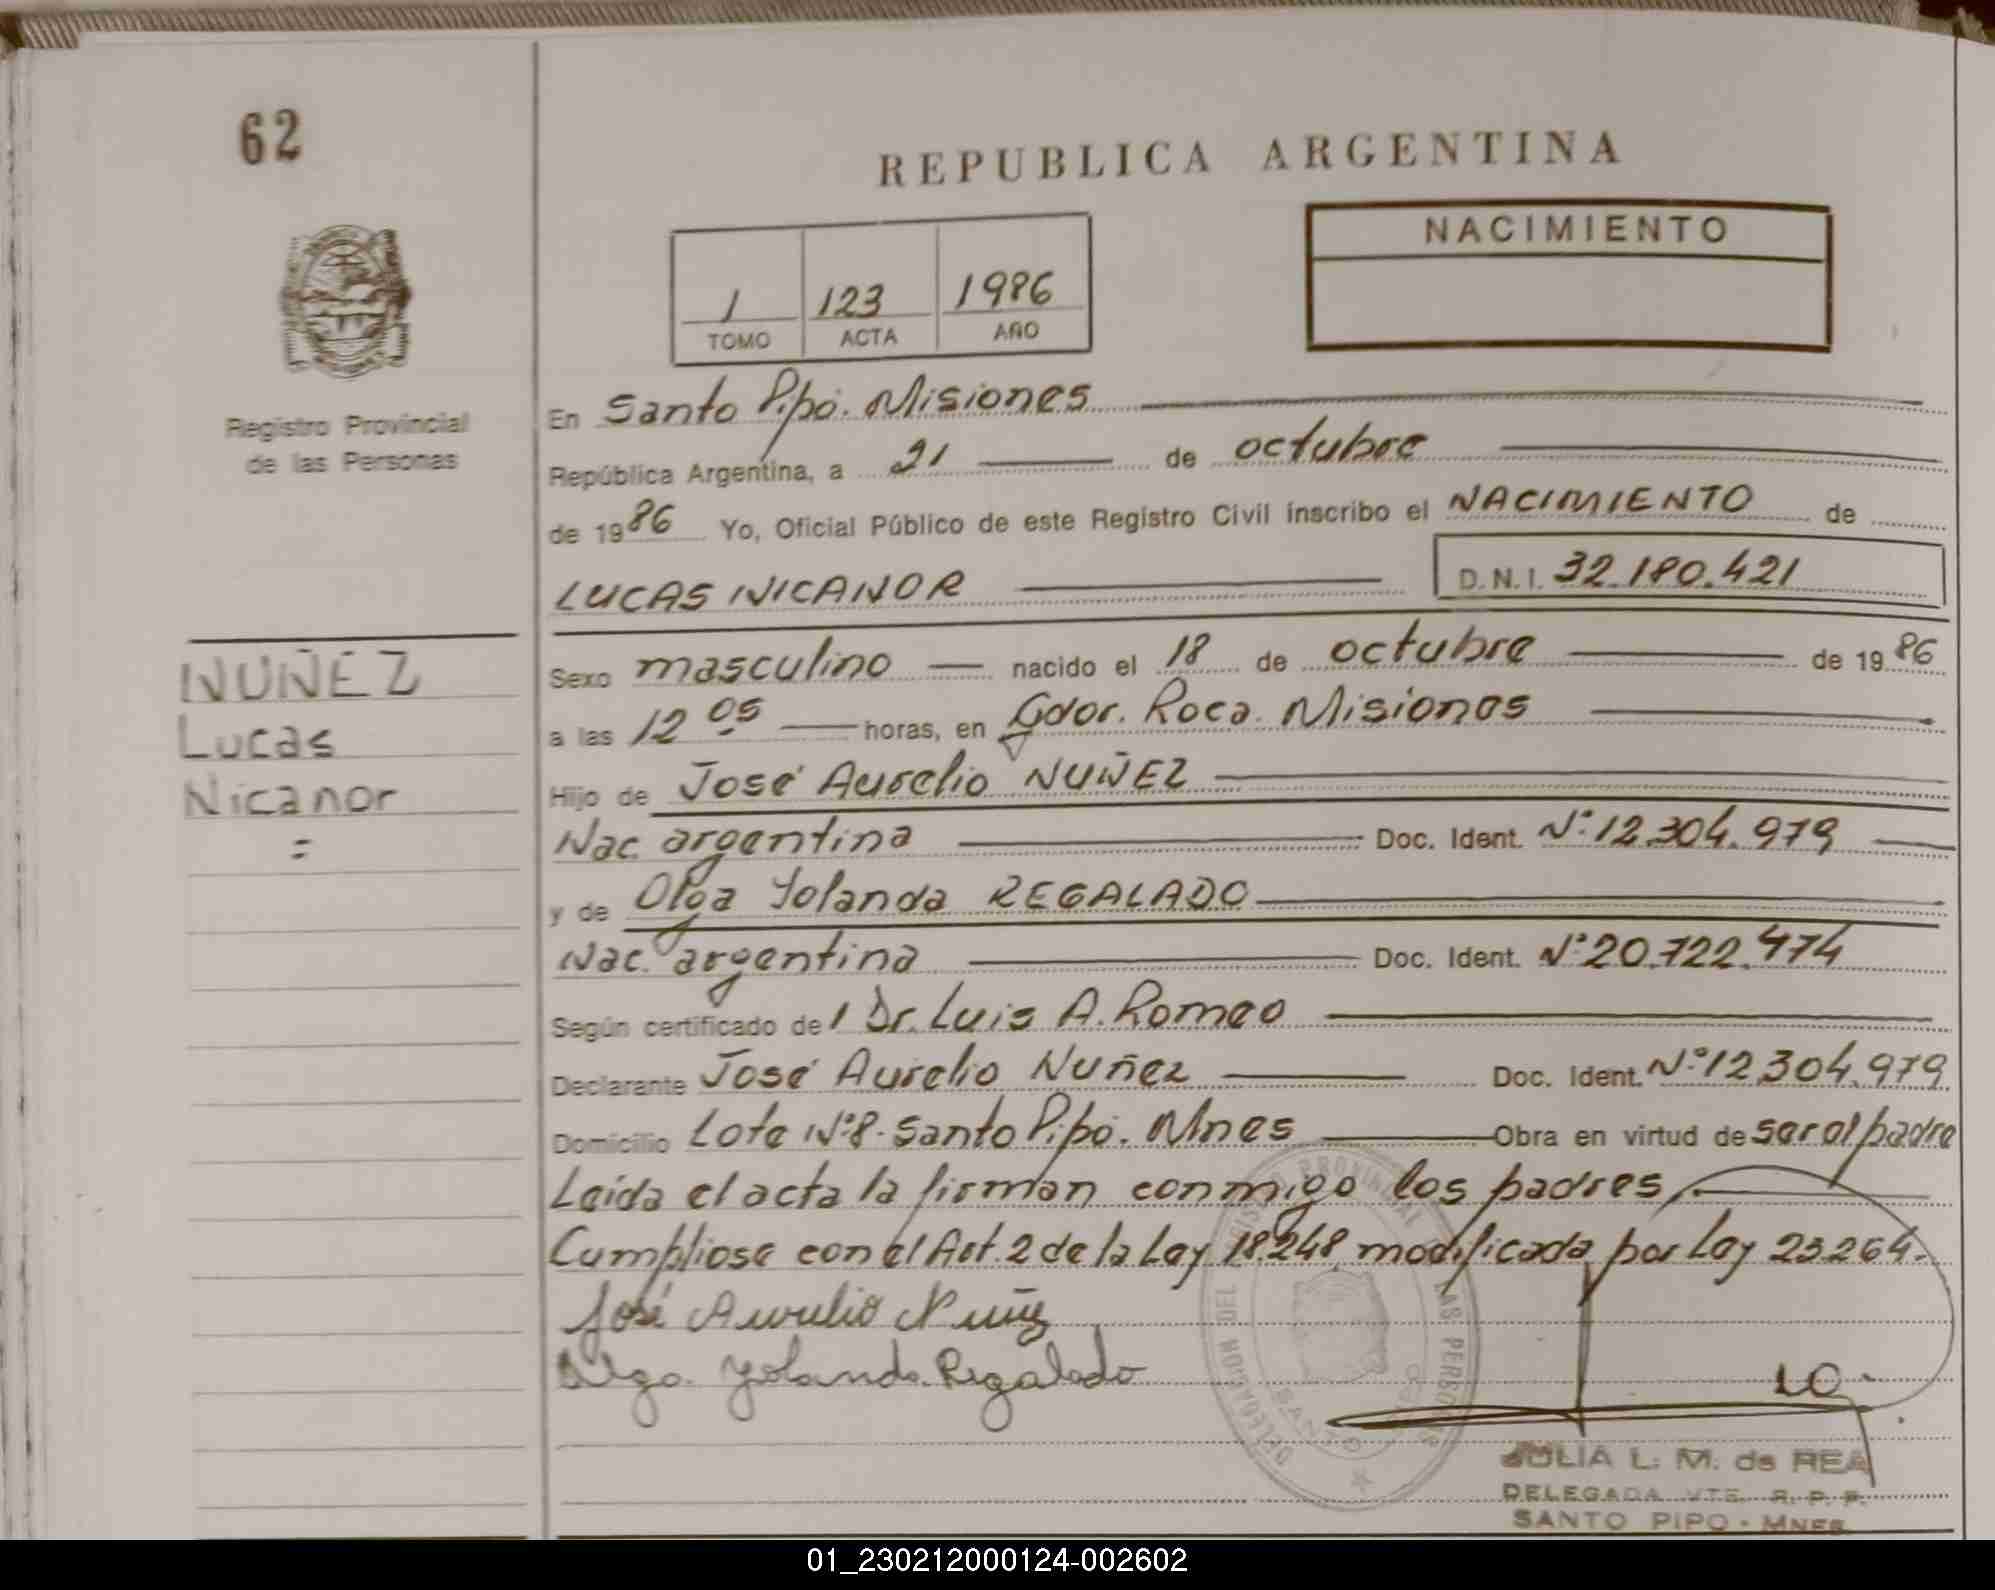 62
REPUBLICA ARGENTINA
NACIMIENTO
1 123 1986
TOMO ACTA AÑO
Registro Provincial
de las Personas
En Santo Pipó. Misiones
República Argentina, a 21 de octubre
de 1986 Yo, Oficial Público de este Registro Civil inscribo el NACIMIENTO de
LUCAS NICANOR D.N.I. 32.180.421
NUÑEZ
Lucas
Nicanor
=
Sexo masculino nacido el 18 de octubre de 1986
a las 12 05 horas, en Gdor. Roca. Misiones
Hijo de José Aurelio NUÑEZ
Nac. argentina Doc. Ident. Nº 12.304.979
y de Olga Yolanda REGALADO
Nac. argentina Doc. Ident. Nº 20.722.474
Según certificado del Dr. Luis A. Romeo
Declarante José Aurelio Nuñez Doc. Ident. Nº 12.304.979
Domicilio Lote Nº 8. Santo Pipó. Mnes Obra en virtud de ser el padre
Leída el acta la firman conmigo los padres.
Cumpliose con el Art. 2 de la Ley 18.248 modificada por Ley 23.264.
José Aurelio Nuñez
Olga Yolanda Regalado
DELEGACION DEL REGISTRO PROVINCIAL DE LAS PERSONAS
SANTO PIPO
JULIA L. M. de REA
DELEGADA VTE. R. P. P.
SANTO PIPO - MNES.
01_230212000124-002602